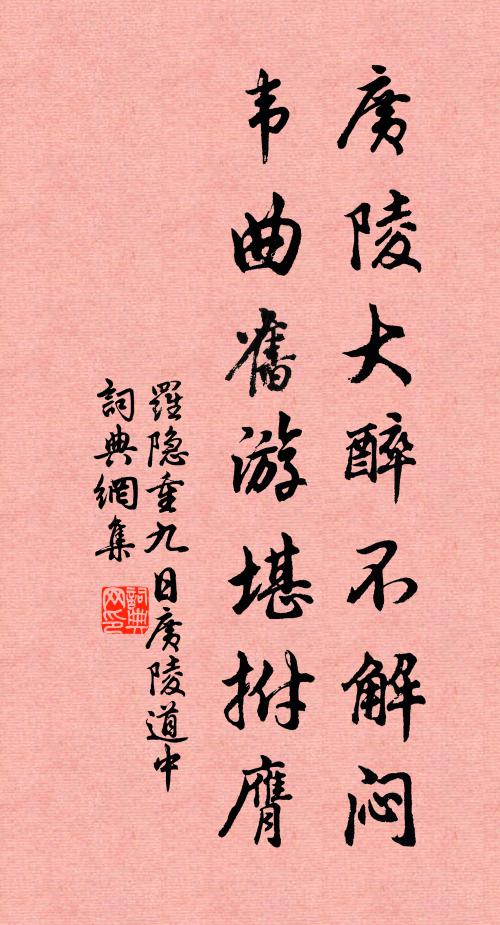 廣陵大醉不解闷
韦曲舊游堪拊膺
羅隐重九日廣陵道中
詞典網集
詞典网印